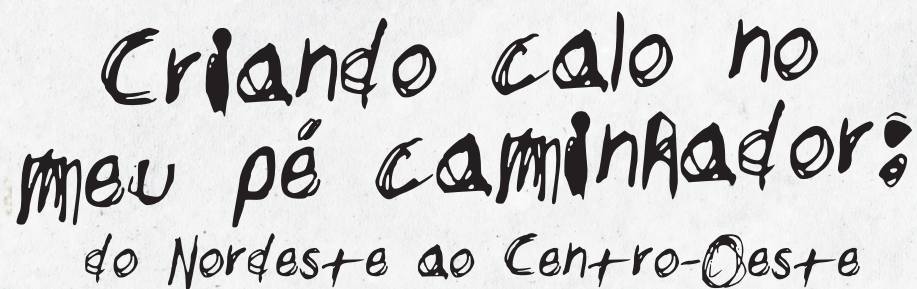 Criando calo no
meu pé caminhador:
do Nordeste ao Centro-Oeste